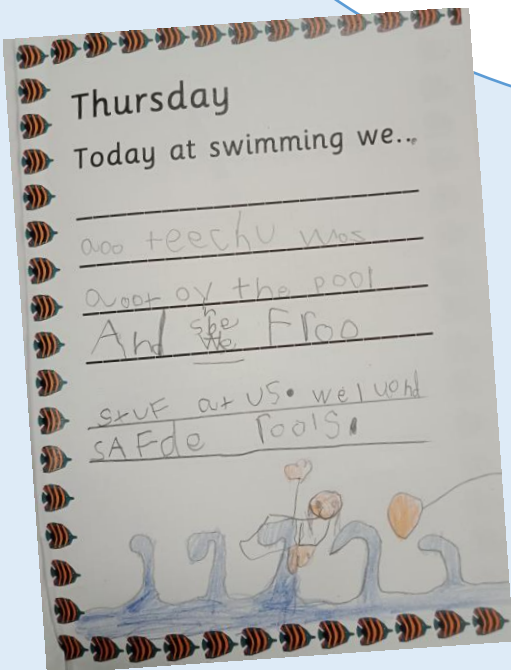 Thursday
Today at swimming we...
aoo teechu was
aoot ov the pool
And she Froo
stuF at US. we luond
SAFde rools.